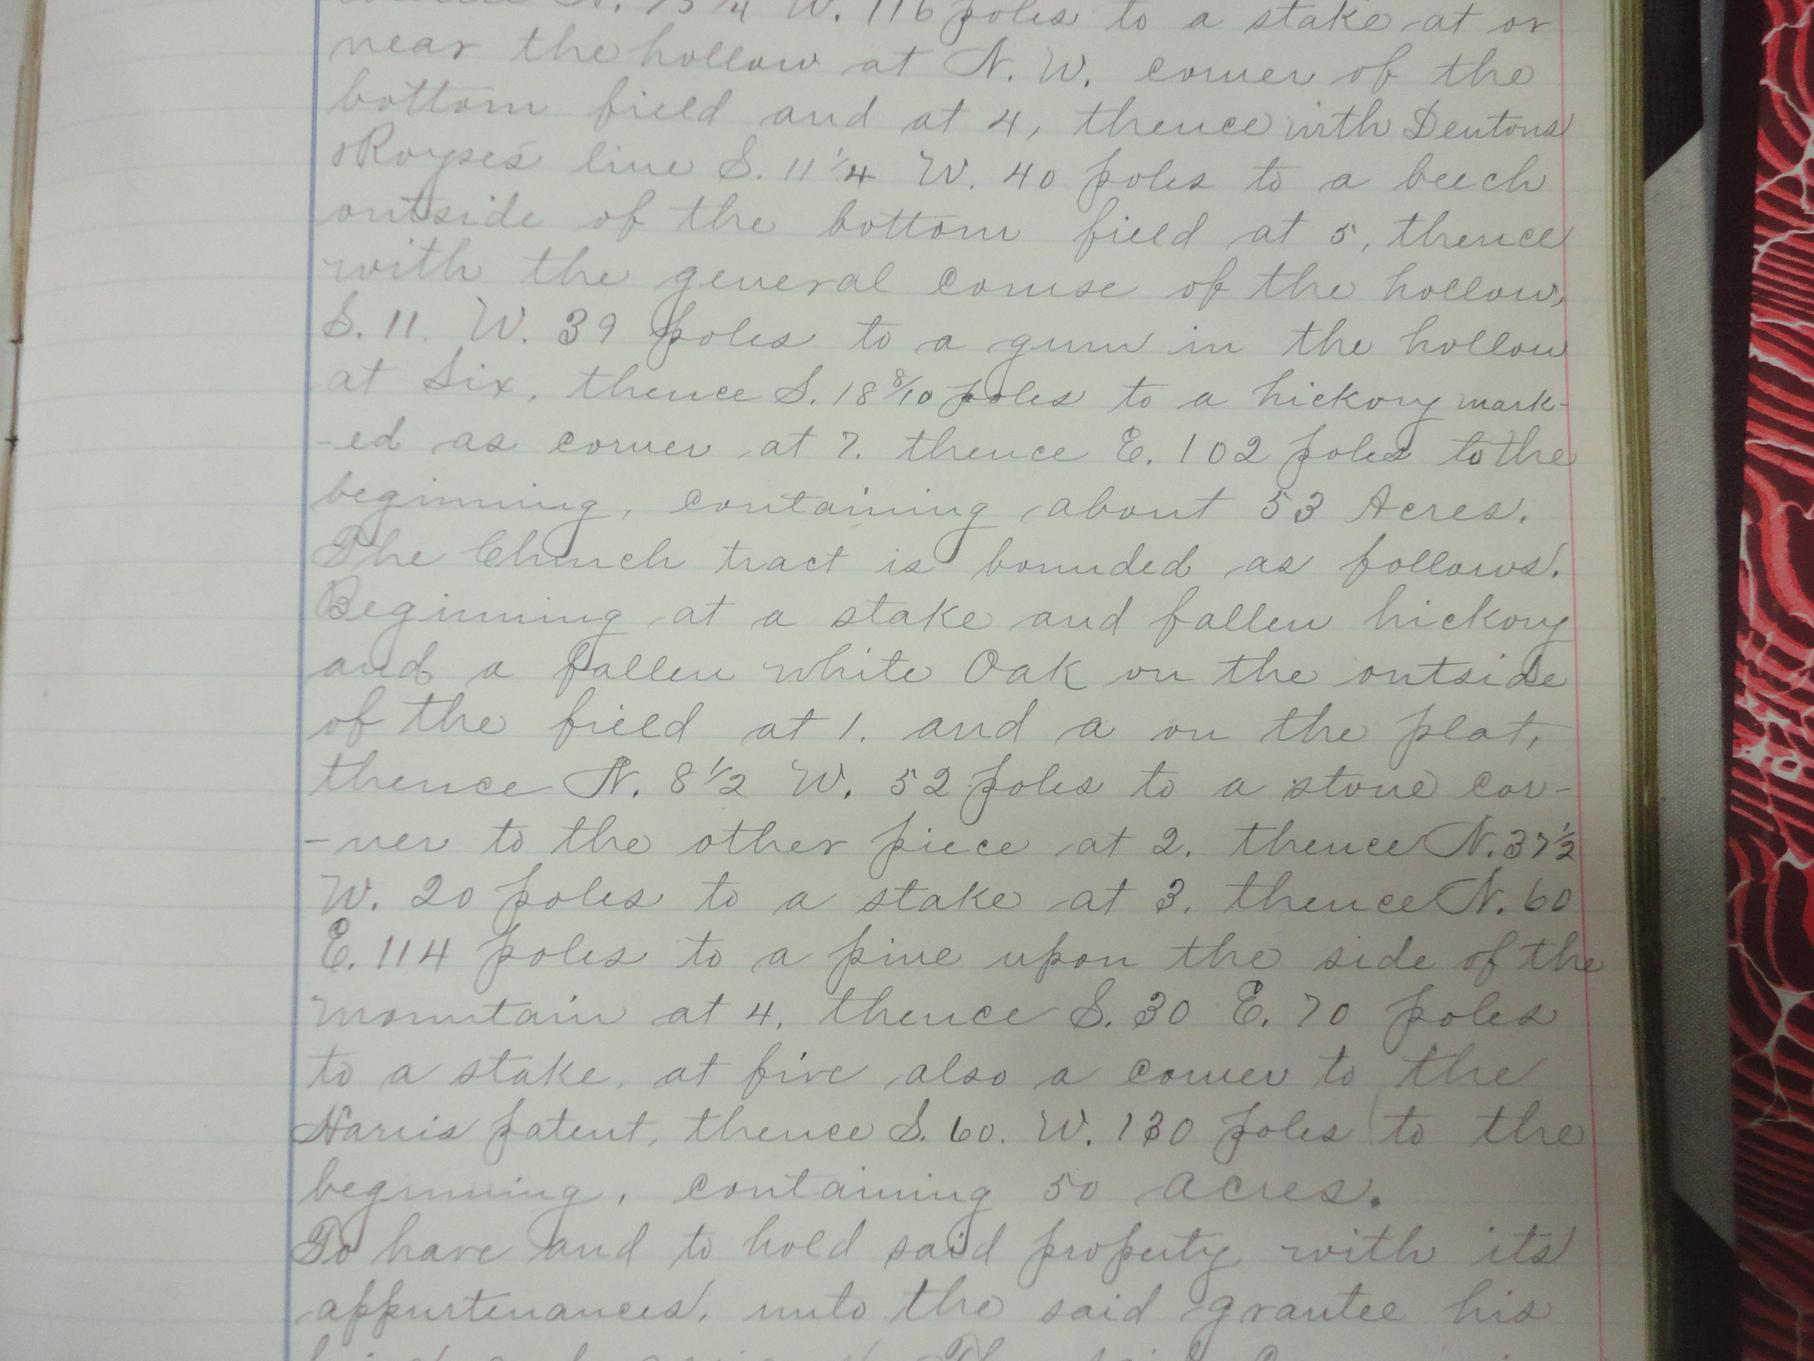 N. 75 1/4 W. 116 poles to a stake at or
near the hollow at N. W. corner of the
bottom field and at 4, thence with Dentons
& Royses line S. 11 1/4 W. 40 poles to a beech
outside of the bottom field at 5, thence
with the general course of the hollow,
S. 11. W. 39 poles to a gum in the hollow
at Six, thence S. 18 8/10 poles to a hickory mark-
-ed as corner at 7. thence E. 102 poles to the
beginning, containing about 53 Acres.
The Church tract is bounded as follows.
Beginning at a stake and fallen hickory
and a fallen white Oak on the outside
of the field at 1. and a on the plat,
thence N. 8 1/2 W. 52 poles to a stone cor-
-ner to the other piece at 2. thence N. 37 1/2
W. 20 poles to a stake at 3. thence N. 60
E. 114 poles to a pine upon the side of the
mountain at 4. thence S. 30 E. 70 poles
to a stake, at five also a corner to the
Harris patent, thence S. 60. W. 130 poles to the
beginning, containing 50 acres.
To have and to hold said property with its
appurtenances, unto the said grantee his